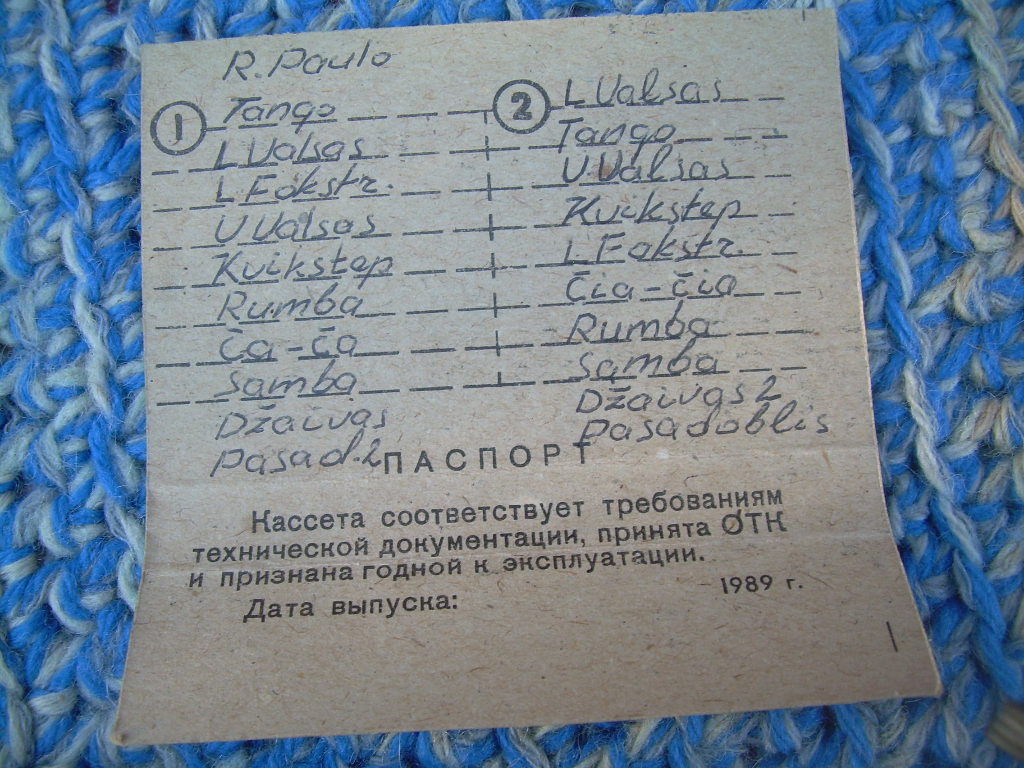 R. Paulo
1
Tango
L Valsas
L Fokstr.
U Valsas
Kvikstep
Rumba
Ča-ča
Samba
Džaivas
Pasad. 2
2
L Valsas
Tango
U. Valsas
Kvikstep
L Fokstr.
Čia-čia
Rumba
Samba
Džaivas 2
Pasadoblis
ПАСПОРТ
Кассета соответствует требованиям
технической документации, принята ОТК
и признана годной к эксплуатации.
Дата выпуска:
1989 г.